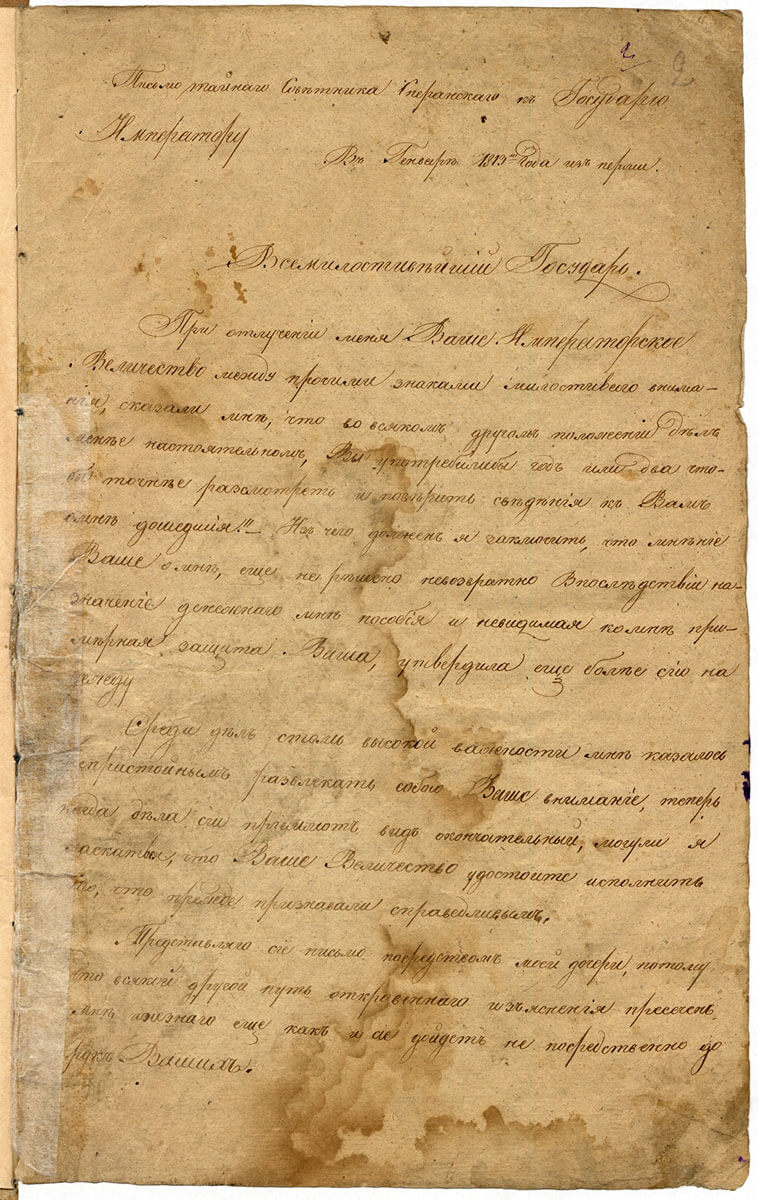 2
Письмо тайнаго Совѣтника Сперанскаго къ Государю
Императору
Въ Генварѣ 1813го Года изъ перми.
Всемилостивѣйшій Государь.
При отлученіи меня Ваше Императорское
Величество между прочими знаками милостиваго внима-
нія, сказали мнѣ, что во всякомъ другомъ положеніи дѣлъ
менѣе настоятельномъ, Вы употребилибы годъ или два что-
бы точнѣе разсмотреть и повѣрить свѣдѣнія къ Вамъ
о мнѣ дошедшія!!! Изъ чего долженъ я заключить, что мнѣніе
Ваше о мнѣ, еще не рѣшено невозвратно Впослѣдствіи на-
значеніе денежнаго мнѣ пособія и невидимая ко мнѣ при-
мѣрная защита Ваша, утвердила еще болѣе сію на
дежду
Среди дѣлъ столь высокой важности мнѣ казалось
непристойнымъ развлекать собою Ваше вниманіе, теперь
когда дѣла сіи приемлютъ видъ окончательный, могули я
ласкаться, что Ваше Величество удостоите исполнить
то, что прежде признавали справедливымъ.
Представляю сіе письмо посредствомъ моей дочери, потому
что всякій другой путь откровеннаго изъясненія пресеченъ
мнѣ еще какъ и не дойдетъ не посредственно до
рукъ Вашихъ.